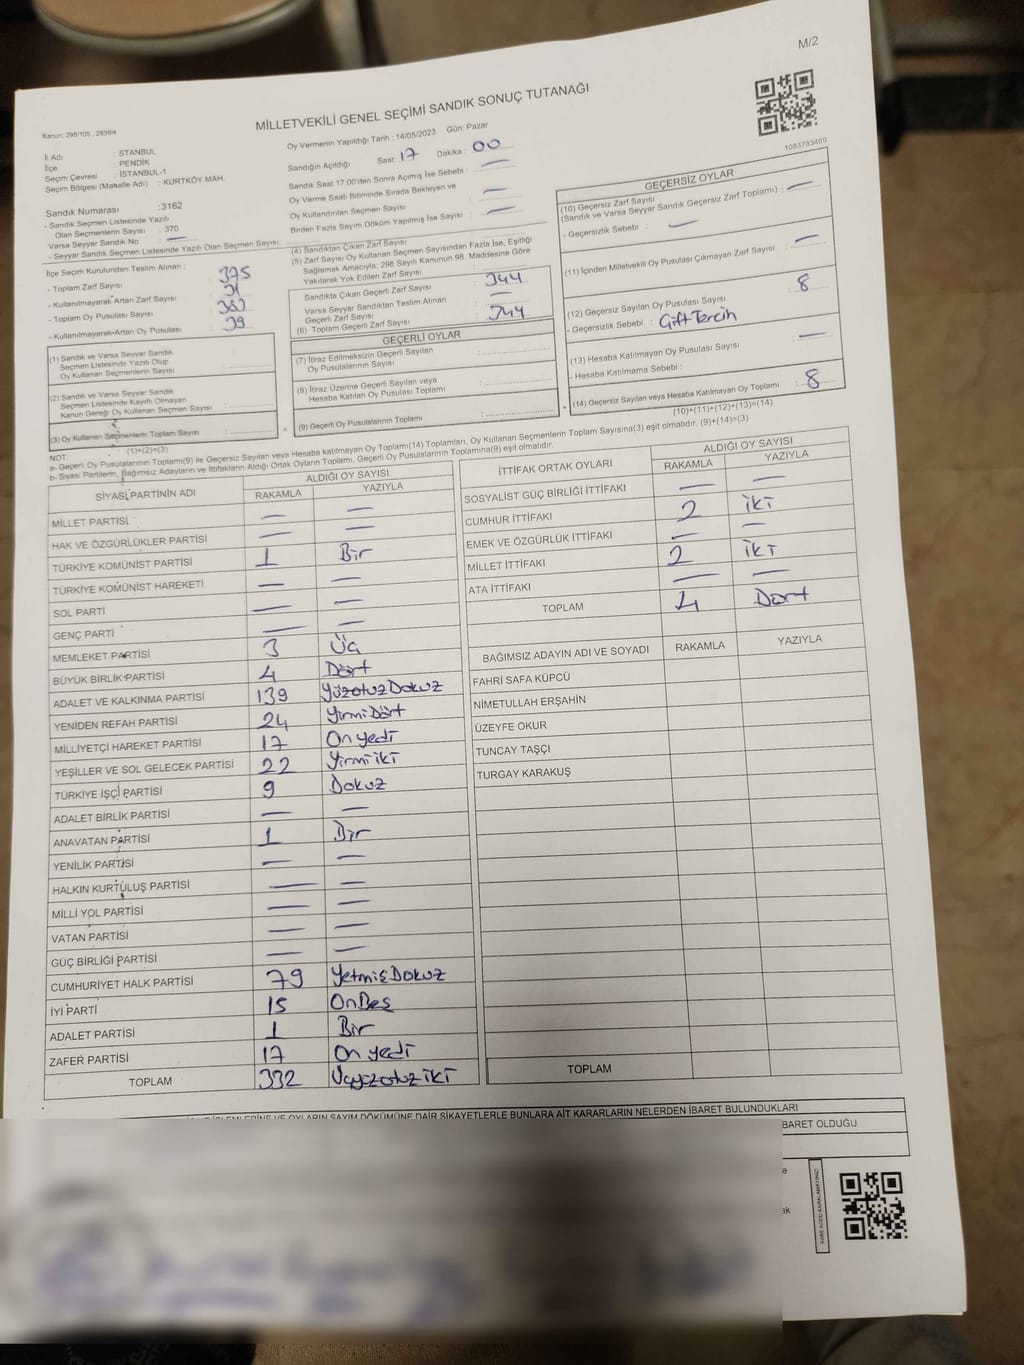 M/2
Kanun: 298/105 ; 2839/4
MİLLETVEKİLİ GENEL SEÇİMİ SANDIK SONUÇ TUTANAĞI
1083783469
İl Adı : STANBUL
İlçe : PENDİK
Seçim Çevresi : İSTANBUL-1
Seçim Bölgesi (Mahalle Adı) : KURTKÖY MAH.
Sandık Numarası : 3162
- Sandık Seçmen Listesinde Yazılı
Olan Seçmenlerin Sayısı : 370
Varsa Seyyar Sandık No : —
- Seyyar Sandık Seçmen Listesinde Yazılı Olan Seçmen Sayısı
Oy Vermenin Yapıldığı Tarih : 14/05/2023 Gün: Pazar
Sandığın Açıldığı Saat: 17 Dakika : 00
Sandık Saat 17:00'den Sonra Açılmış İse Sebebi : —
Oy Verme Saati Bitiminde Sırada Bekleyen ve
Oy Kullandırılan Seçmen Sayısı : —
Birden Fazla Sayım Döküm Yapılmış İse Sayısı : —
İlçe Seçim Kurulundan Teslim Alınan :
- Toplam Zarf Sayısı : 375
- Kullanılmayarak Artan Zarf Sayısı : 31
- Toplam Oy Pusulası Sayısı : 383
- Kullanılmayarak Artan Oy Pusulası : 39
(1) Sandık ve Varsa Seyyar Sandık
Seçmen Listesinde Yazılı Olup
Oy Kullanan Seçmenlerin Sayısı :
(2) Sandık ve Varsa Seyyar Sandık
Seçmen Listesinde Kayıtlı Olmayan
Kanun Gereği Oy Kullanan Seçmen Sayısı :
(3) Oy Kullanan Seçmenlerin Toplam Sayısı :
(1)+(2)=(3)
(4) Sandıktan Çıkan Zarf Sayısı
(5) Zarf Sayısı Oy Kullanan Seçmen Sayısından Fazla İse, Eşitliği
Sağlamak Amacıyla, 298 Sayılı Kanunun 98. Maddesine Göre
Yakılarak Yok Edilen Zarf Sayısı :
Sandıkta Çıkan Geçerli Zarf Sayısı : 344
Varsa Seyyar Sandıktan Teslim Alınan
Geçerli Zarf Sayısı : —
(6) Toplam Geçerli Zarf Sayısı : 344
GEÇERLİ OYLAR
(7) İtiraz Edilmeksizin Geçerli Sayılan
Oy Pusulalarının Sayısı :
(8) İtiraz Üzerine Geçerli Sayılan veya
Hesaba Katılan Oy Pusulası Toplamı :
= (9) Geçerli Oy Pusulalarının Toplamı : +
GEÇERSİZ OYLAR
(10) Geçersiz Zarf Sayısı
(Sandık ve Varsa Seyyar Sandık Geçersiz Zarf Toplamı) : —
- Geçersizlik Sebebi : —
(11) İçinden Milletvekili Oy Pusulası Çıkmayan Zarf Sayısı : —
(12) Geçersiz Sayılan Oy Pusulası Sayısı : 8
- Geçersizlik Sebebi : Çift Tercih
(13) Hesaba Katılmayan Oy Pusulası Sayısı : —
- Hesaba Katılmama Sebebi :
(14) Geçersiz Sayılan veya Hesaba Katılmayan Oy Toplamı : 8
(10)+(11)+(12)+(13)=(14)
NOT:
a- Geçerli Oy Pusulalarının Toplamı(9) ile Geçersiz Sayılan veya Hesaba katılmayan Oy Toplamı(14) Toplamları, Oy Kullanan Seçmenlerin Toplam Sayısına(3) eşit olmalıdır. (9)+(14)=(3)
b- Siyasi Partilerin, Bağımsız Adayların ve İttifakların Aldığı Ortak Oyların Toplamı, Geçerli Oy Pusulalarının Toplamına(9) eşit olmalıdır.
SİYASİ PARTİNİN ADI ALDIĞI OY SAYISI
RAKAMLA YAZIYLA
MİLLET PARTİSİ — —
HAK VE ÖZGÜRLÜKLER PARTİSİ — —
TÜRKİYE KOMÜNİST PARTİSİ 1 Bir
TÜRKİYE KOMÜNİST HAREKETİ — —
SOL PARTİ — —
GENÇ PARTİ — —
MEMLEKET PARTİSİ 3 Üç
BÜYÜK BİRLİK PARTİSİ 4 Dört
ADALET VE KALKINMA PARTİSİ 139 YüzotuzDokuz
YENİDEN REFAH PARTİSİ 24 YirmiDört
MİLLİYETÇİ HAREKET PARTİSİ 17 Onyedi
YEŞİLLER VE SOL GELECEK PARTİSİ 22 Yirmiiki
TÜRKİYE İŞÇİ PARTİSİ 9 Dokuz
ADALET BİRLİK PARTİSİ — —
ANAVATAN PARTİSİ 1 Bir
YENİLİK PARTİSİ — —
HALKIN KURTULUŞ PARTİSİ — —
MİLLİ YOL PARTİSİ — —
VATAN PARTİSİ — —
GÜÇ BİRLİĞİ PARTİSİ — —
CUMHURİYET HALK PARTİSİ 79 YetmişDokuz
İYİ PARTİ 15 OnBeş
ADALET PARTİSİ 1 Bir
ZAFER PARTİSİ 17 On yedi
TOPLAM 332 Üçyüzotuz iki
İTTİFAK ORTAK OYLARI ALDIĞI OY SAYISI
RAKAMLA YAZIYLA
SOSYALİST GÜÇ BİRLİĞİ İTTİFAKI — —
CUMHUR İTTİFAKI 2 iki
EMEK VE ÖZGÜRLÜK İTTİFAKI — —
MİLLET İTTİFAKI 2 iki
ATA İTTİFAKI — —
TOPLAM 4 Dört
BAĞIMSIZ ADAYIN ADI VE SOYADI RAKAMLA YAZIYLA
FAHRİ SAFA KÜPCÜ
NİMETULLAH ERŞAHİN
ÜZEYFE OKUR
TUNCAY TAŞÇI
TURGAY KARAKUŞ
TOPLAM
OYLARIN SAYIM DÖKÜMÜNE DAİR ŞİKAYETLERLE BUNLARA AİT KARARLARIN NELERDEN İBARET BULUNDUKLARI
BARET OLDUĞU